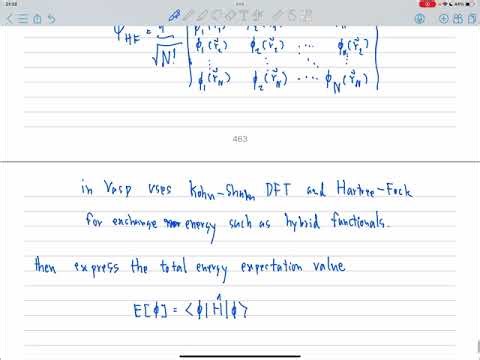 21:32
44%
Ψ_HF = 1/√N! | φ₁(r⃗₁) φ₂(r⃗₁) ...
φ₁(r⃗₂) φ₂(r⃗₂) ... φ_N(r⃗₂)
⋮ ⋮ ⋱ ⋮
φ₁(r⃗_N) φ₂(r⃗_N) ... φ_N(r⃗_N)
463
in Vasp uses Kohn-Sham DFT and Hartree-Fock
for exchange energy such as hybrid functionals.
then express the total energy expectation value
E[φ] = ⟨φ|Ĥ|φ⟩